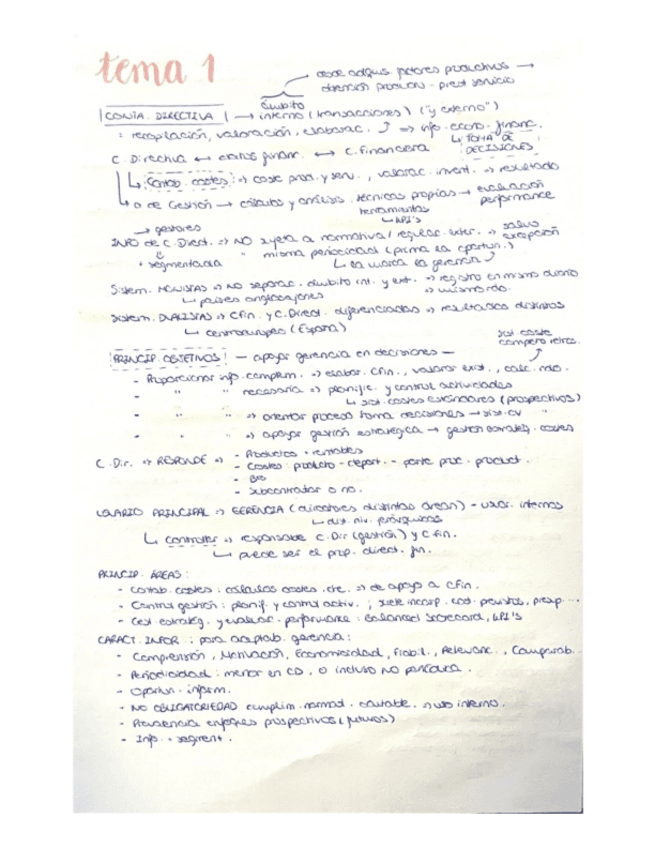 tema 1
desde adquis. factores productivos →
obtención producto - prest servicio
CONTA. DIRECTIVA → ámbito interno (transacciones) ("y externo")
: recopilación, valoración, elaborac. ⇒ info. econo. financ.
↳ TOMA DE DECISIONES
C. Directiva ↔ estados financ. ↔ C. financiera
↳ Contab. costes : ⇒ coste prod. y serv. , valorac. invent. ⇒ resultado
↳ o de Gestión → cálculos y análisis . técnicas propias → evaluación performance
herramientas
↳ KPI's
→ gestores
INFO de C. Direct. ⇒ NO sujeta a normativa / regulac. exter. ⇒ salvo excepción
" misma periodicidad (prima la oportun.)
+ segmentada ↳ la marca la gerencia
Sistem. MONISTAS ⇒ NO separac. ámbito int. y ext. ⇒ registro en mismo diario
↳ países anglosajones ⇒ mismo rdo.
Sistem. DUALISTAS ⇒ C fin. y C. Direct. diferenciadas ⇒ resultados distintos
↳ centroeuropeo (España)
sist coste
completo retros.
PRINCIP. OBJETIVOS — apoyar gerencia en decisiones —
- Proporcionar info. complem. ⇒ elabor. C fin. , valorar exist. , calc. rdo.
- " " " necesaria ⇒ planific. y control actividades
↳ sist. costes estándares (prospectivos)
- " " " ⇒ orientar proceso toma decisiones → sist. CV "
- " " " ⇒ apoyar gestión estratégica → gestión estratég. costes
C. Dir. ⇒ RESPONDE ⇒ - Productos + rentables
- Costes : producto - depart. - parte proc. product.
- Bº
- Subcontratar o no.
USUARIO PRINCIPAL ⇒ GERENCIA (directores distintas áreas) - usuar. internos
↳ dist. niv. jerárquicos
↳ controller ⇒ responsable C. Dir (gestión) y C fin.
↳ puede ser el prop. direct. fin.
PRINCIP. ÁREAS :
- Contab. costes : cálculos costes , etc. ⇒ de apoyo a C fin.
- Control gestión : planif. y control activ. ; suele incorp. cost. previstos, presup...
- Gest. estratég. y evaluar. performance : Balanced Scorecard, KPI's
CARACT. INFOR. : para aceptab. gerencia :
- Comprensión , Motivación , Economicidad , Fiabil. , Relevanc. , Comparab.
- Periodicidad : menor en CD , o incluso NO periódica .
- Oportun. inform.
- NO OBLIGATORIEDAD cumplim. normat. contable. ⇒ uso interno.
- Prevalencia enfoques prospectivos (futuros)
- Info. + segment .